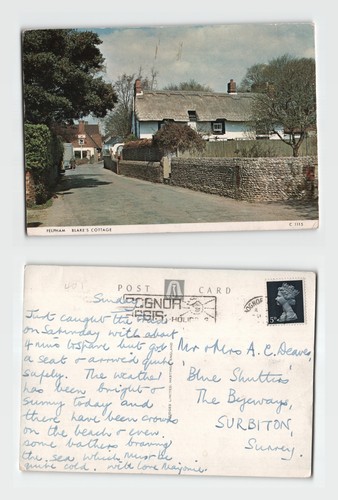 FELPHAM BLAKE'S COTTAGE C 1115
POST CARD
Sunday
BOGNOR
REGIS
Just caught the train
on Saturday with about
4 mins to spare but got
a seat & arrived quite
safely. The weather
has been bright &
sunny today and
there have been crowds
on the beach & even
some bathers braving
the sea which must be
quite cold. With love Marjorie.
Mr & Mrs A. C. Deaves,
Blue Shutters
The Byeways,
SURBITON,
Surrey.